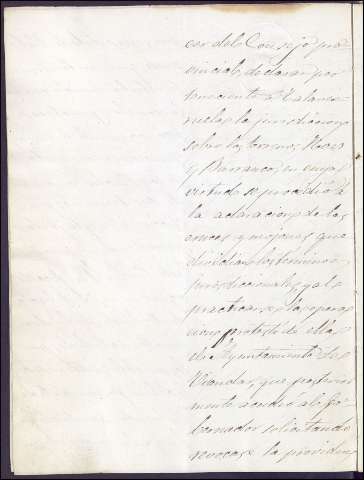 cer del Consejo pro-
vincial, declarar per
teneciente á Talave-
ruela la jurisdiccion
sobre los terrenos, Hoces
y Barranco, en cuya
virtud se procedió á
la aclaracion de las
cruces y mojones que
dividian los terminos
jurisdiccionales, y al
practicarse la opera
cion protestó de ella
el Ayuntamiento de
Viandar, que posterior
mente acudió al Go-
bernador solicitando
revocase la providen